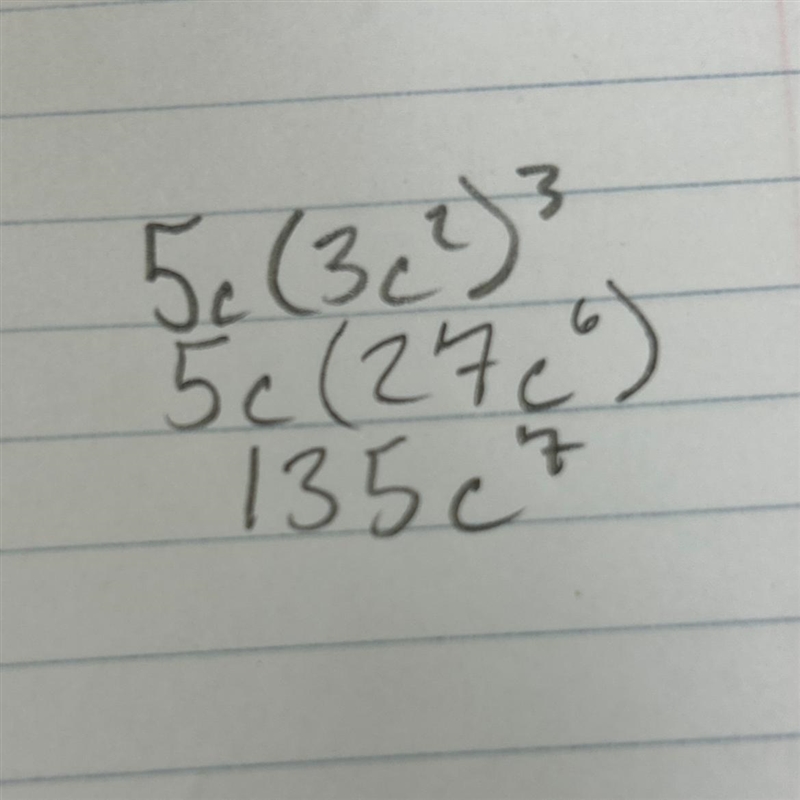 5c(3c²)³
5c(27c⁶)
135c⁷